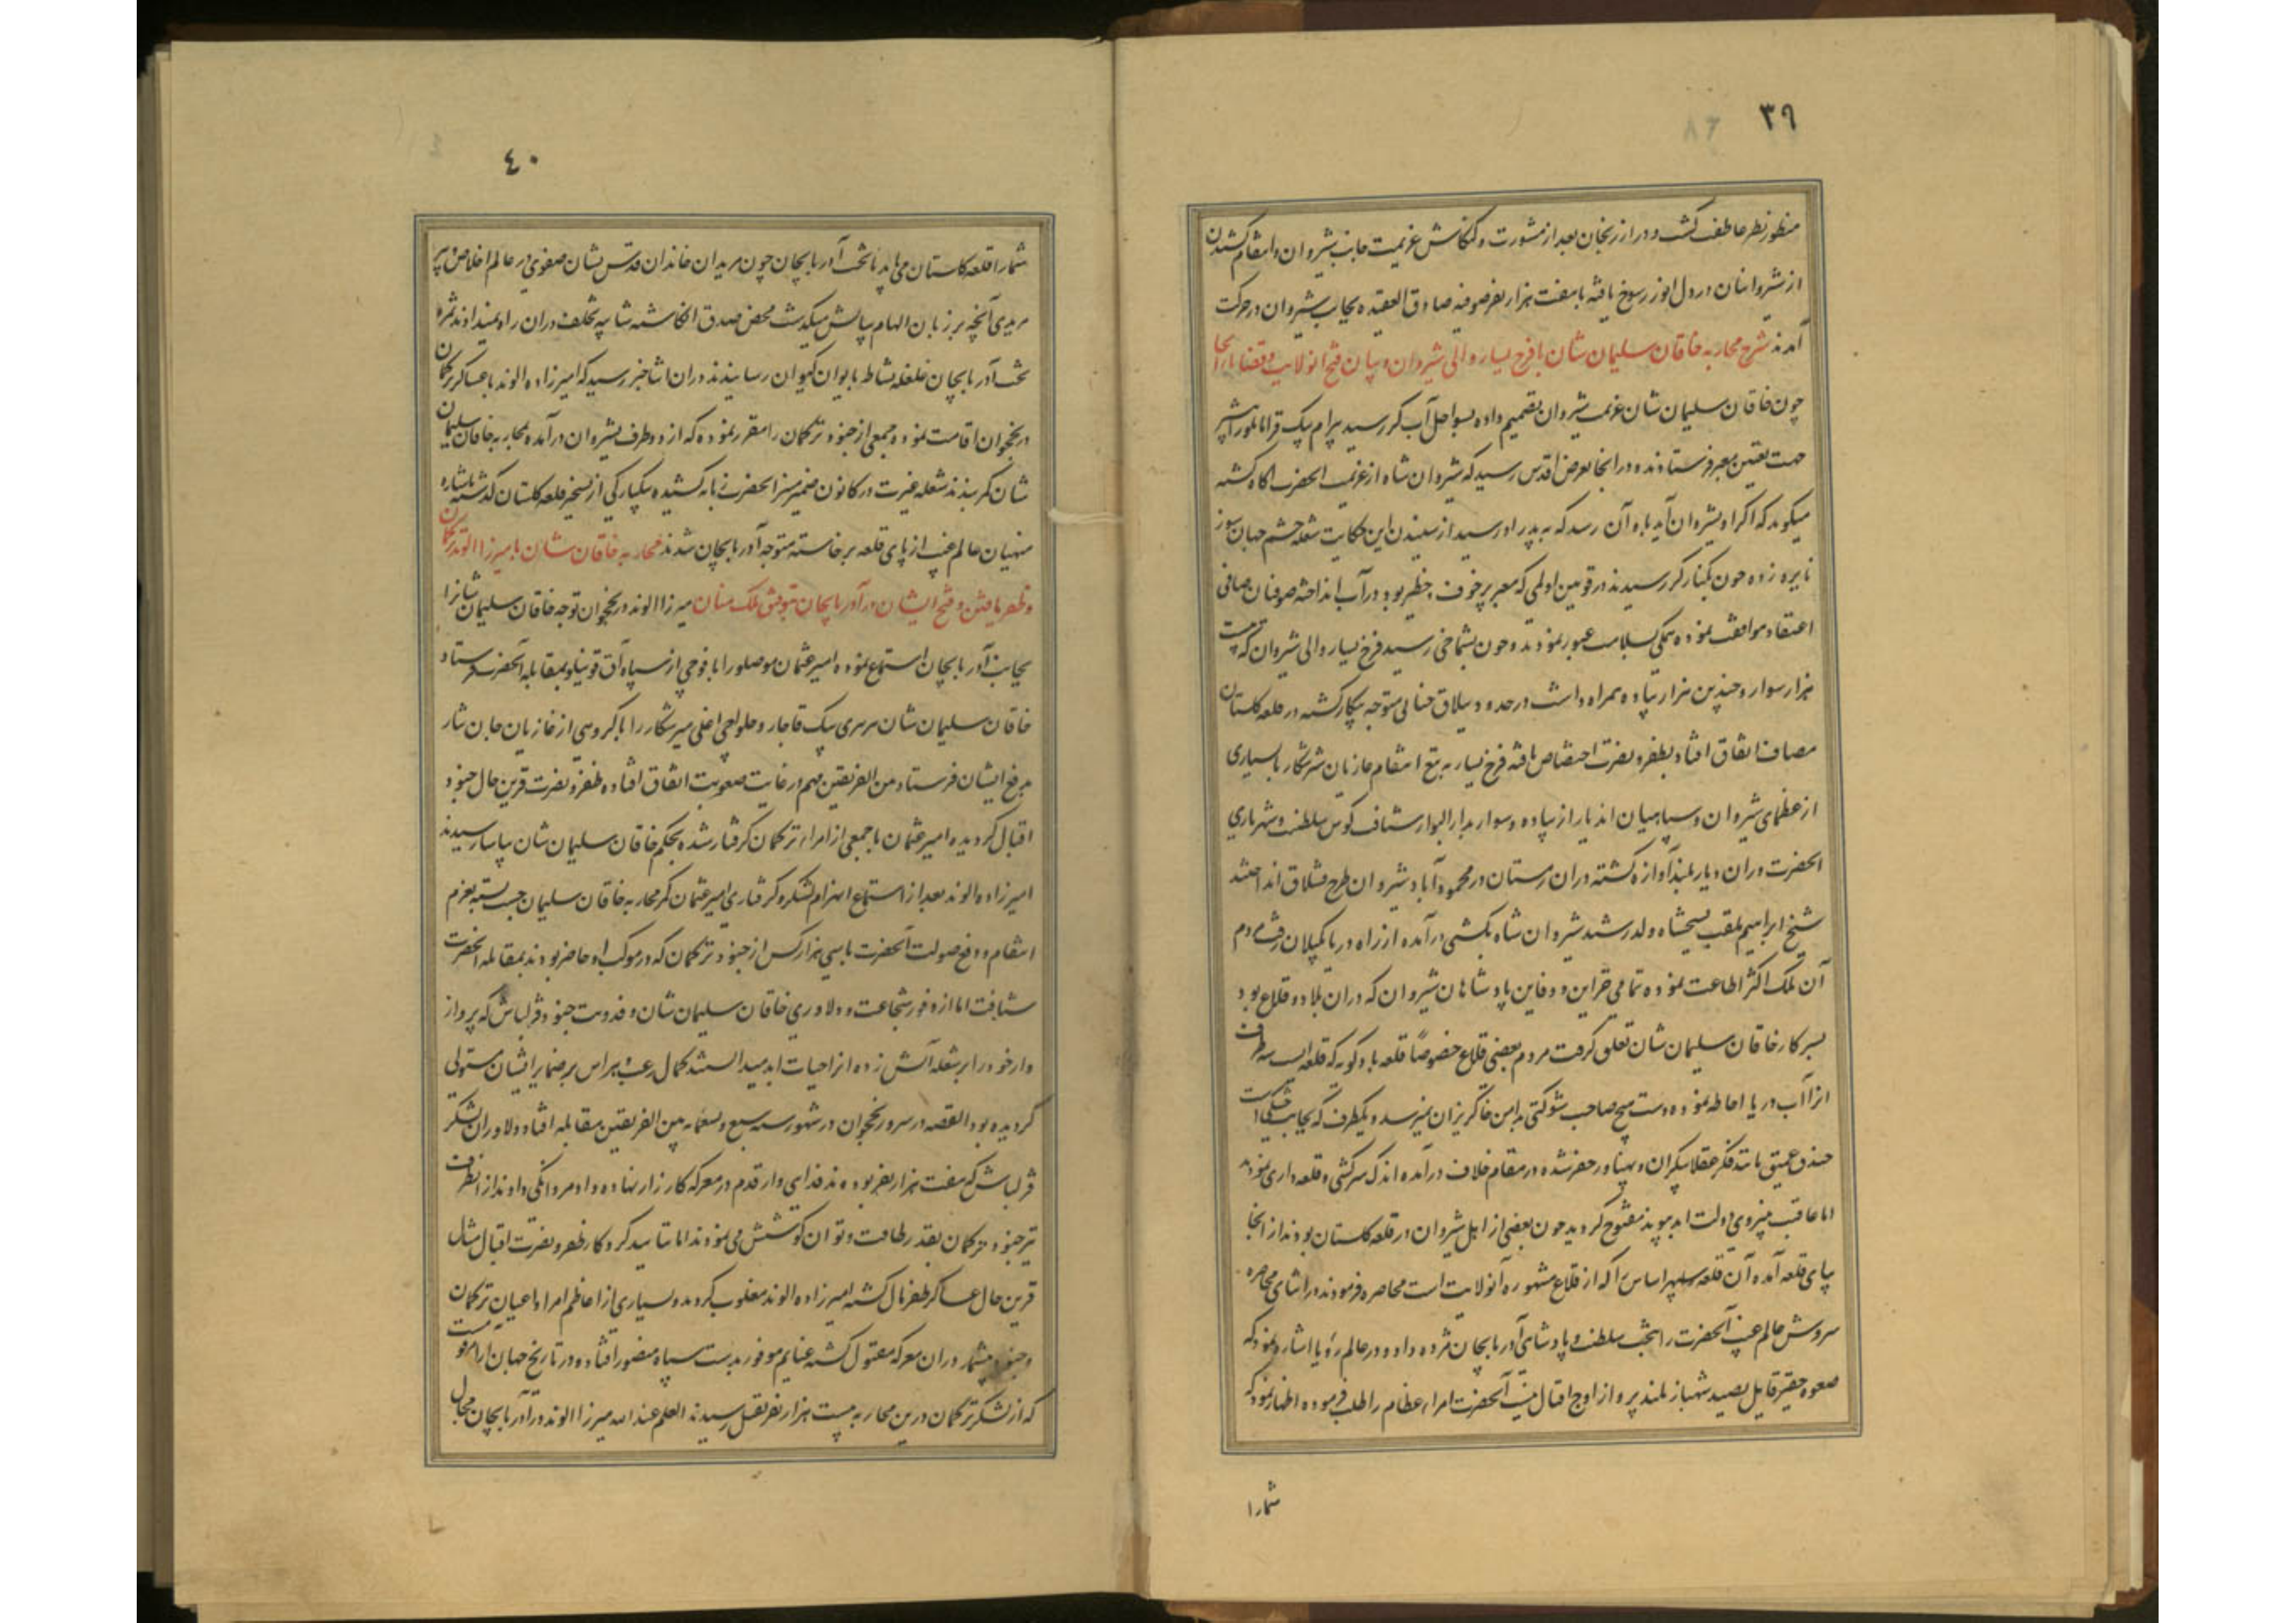 ٣٩
منظور نظر عاطفت گشت و در ارزنجان بعد از مشورت و کنکاش عزیمت جانب شیروان و انتقام کشیدن
از شروانیان در دل انور رسوخ یافته با هفت هزار نفر صوفیه صادق العقیده بجانب شیروان در حرکت
آمدند شرح محاربه خاقان سلیمان شان با فرخ یسار والی شیروان و بیان فتح انولایت
چون خاقان سلیمان شان عزیمت شیروان تصمیم داده بسواحل آب کر رسید بیرام بیک قرامانلو را
جهت تعیین معبر فرستادند و در انجا بعرض اقدس رسید که شیروان شاه از عزیمت انحضرت اکاه کشته
میکوید که اکر او بشیروان آید باو آن رسد که به پدر او رسید از شنیدن این حکایت شعله خشم جهان سوز
نایره زده چون بکنار کر رسیدند در قوین اولمی که معبر پر خوف و خطر بود در آب انداخته صوفیان صافی
اعتقاد موافقت نموده همکی بسلامت عبور نمودند و چون بشماخی رسید فرخ یسار والی شروان که بیست
هزار سوار و چندین هزار پیاده همراه داشت در حدود ییلاق متوجه پیکار کشته در قلعه کلستان
مصاف اتفاق افتاد بظفر و نصرت اختصاص یافته فرخ یسار به تیغ انتقام غازیان شیرشکار با بسیاری
از عظمای شیروان و سپاهیان اندیار از پیاده و سوار بدار البوار شتافت کوس سلطنت و شهریاری
انحضرت دران دیار بلند آوازه کشته دران زمستان در محمود آباد شیروان طرح قشلاق انداختند
شیخ ابراهیم ملقب بشیخشاه ولد رشید شیروان شاه بکشتی در آمده از راه دریا بکیلان رفت مردم
آن ملک اکثر اطاعت نموده تمامی خزاین و دفاین پادشاهان شیروان که دران بلاد و قلاع بود
بسرکار خاقان سلیمان شان تعلق کرفت مردم بعضی قلاع خصوصاً قلعه بادکوبه که قلعه ایست سه طرف
انرا آب دریا احاطه نموده و دست هیچ صاحب شوکتی بدامن خاکریز ان نمیرسد و یکطرف که بجانب خشکیست
خندق عمیق مانند فکر عقلا بیکران و پهناور حفر شده در مقام خلاف در آمده اندک سرکشی و قلعه داری نمودند
اما عاقبت بنیروی دولت ابد پیوند مفتوح کردید چون بعضی از اهل شیروان در قلعه کلستان بودند از انجا
بپای قلعه آمده آن قلعه سپهر اساس را که از قلاع مشهوره آنولایت است محاصره فرمودند در اثنای محاصره
سروش عالم غیب آنحضرت را بتخت سلطنت و پادشاهی آذربایجان مژده داده و در عالم رؤیا اشاره نمود که
صعوه حقیر قابل بصید شهباز بلند پرواز اوج اقبال نیست آنحضرت امراء عظام را طلب فرموده اظهار نمود که
شمارا
٤٠
شمارا قلعه کلستان می باید یا تخت آذربایجان چون مریدان خاندان قدس نشان صفوی در عالم اخلاص و پیر
مریدی آنچه بر زبان الهام بیانش میکذشت محض صدق انکاشته شایبه تخلف دران راه نمیدادند مژده
تخت آذربایجان غلغله نشاط بایوان کیوان رسانیدند دران اثنا خبر رسید که امیرزاده الوند با عساکر ترکمان
در نخجوان اقامت نموده جمعی از جنود ترکمان را مقرر نموده که از دو طرف بشیروان در آمده بمحاربه خاقان سلیمان
شان کمر بندند شعله غیرت در کانون ضمیر منیر انحضرت زبانه کشیده یکبارکی از تسخیر قلعه کلستان کذشته باشاره
منهیان عالم غیب از پای قلعه بر خاسته متوجه آذربایجان شدند محاربه خاقان سلیمان شان با میرزا الوند ترکمان
و ظفر یافتن و فتح ایشان در آذربایجان بتوفیق ملک منان میرزا الوند در نخجوان توجه خاقان سلیمان شانرا
بجانب آذربایجان استماع نموده امیر عثمان موصلو را با فوجی از سپاه آق قوینلو بمقابله انحضرت فرستاد
خاقان سلیمان شان پیری بیک قاجار و حلواچی اغلی میر شکار را با کروهی از غازیان جان نثار
بدفع ایشان فرستاد من الفریقین مهم در غایت صعوبت اتفاق افتاده ظفر و نصرت قرین حال جنود
اقبال کردیده امیر عثمان با جمعی از امراء ترکمان کرفتار شده بحکم خاقان سلیمان شان بیاسا رسیدند
امیرزاده الوند بعد از استماع انهزام لشکر و کرفتاری امیر عثمان کمر محاربه خاقان سلیمان حسب بسته بعزم
انتقام و دفع صولت آنحضرت با سی هزار کس از جنود ترکمان که در موکب او حاضر بودند بمقابله انحضرت
شتافت اما از وفور شجاعت و دلاوری خاقان سلیمان شان و فدویت جنود قزلباش که پروانه
وار خود را بر شعله آتش زده انرا حیات ابد میدانستند کمال رعب و هراس بر ضمایر ایشان مستولی
کردیده بود القصه در سرور نخجوان در شهور سنه سبع و تسعمایه بین الفریقین مقابله افتاد دلاوران لشکر
قزلباش که هفت هزار نفر بودند فدایی وار قدم در معرکه کارزار نهاده داد مردانکی دادند از انطرف
نیز جنود ترکمان بقدر طاقت و توان کوشش می نمودند اما تایید کردکار ظفر و نصرت اقبال مثال
قرین حال عساکر ظفر مال کشته امیرزاده الوند مغلوب کردید و بسیاری از اعاظم امرا و اعیان ترکمان
و جنود بیشمار دران معرکه مقتول کشته غنایم موفور بدست سپاه منصور افتاد و در تاریخ جهان آرا مرقومست
که از لشکر ترکمان درین محاربه بیست هزار نفر بقتل رسیدند العلم عند الله میرزا الوند در آذربایجان مجال